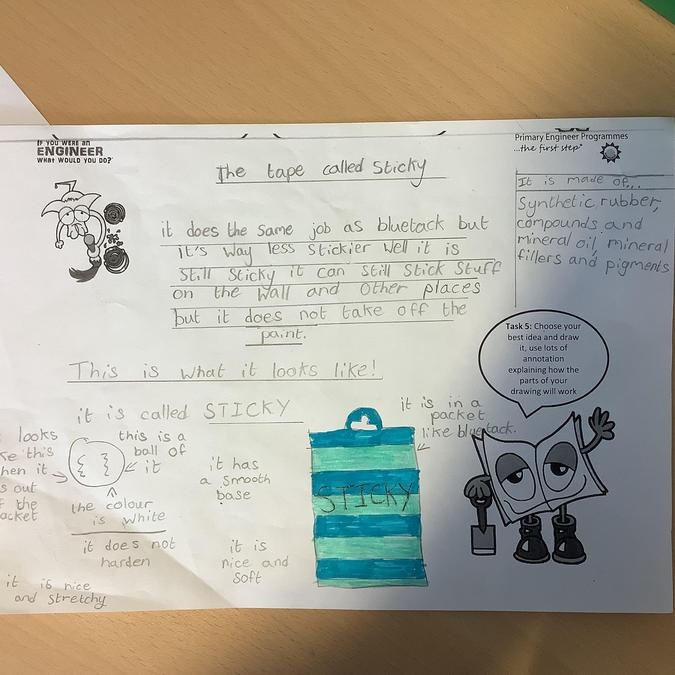 IF YOU WERE AN
ENGINEER
WHAT WOULD YOU DO?
Primary Engineer Programmes
...the first step*
The tape called Sticky
It is made of...
Synthetic rubber,
compounds and
mineral oil, mineral
fillers and pigments
it does the same job as bluetack but
it's way less stickier well it is
still sticky it can still stick stuff
on the wall and other places
but it does not take off the
paint.
Task 5: Choose your
best idea and draw
it, use lots of
annotation
explaining how the
parts of your
drawing will work
This is what it looks like!
it is called STICKY
looks
this
it
out
the
this is a
ball of
it
the colour
is white
it does not
harden
it is nice
and stretchy
it has
a smooth
base
it is
nice and
soft
STICKY
it is in a
packet
like bluetack.